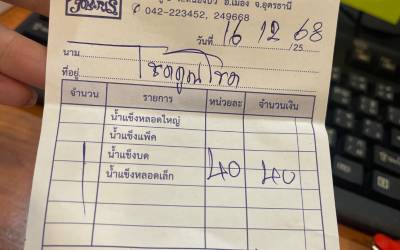 อ.เมือง จ.อุดรธานี
042-223452, 249668
วันที่ 16 12 68 /25
นาม โชคคูณโชค
ที่อยู่
จำนวน รายการ หน่วยละ จำนวนเงิน
น้ำแข็งหลอดใหญ่
น้ำแข็งแพ็ค
1 น้ำแข็งบด 40 40
น้ำแข็งหลอดเล็ก